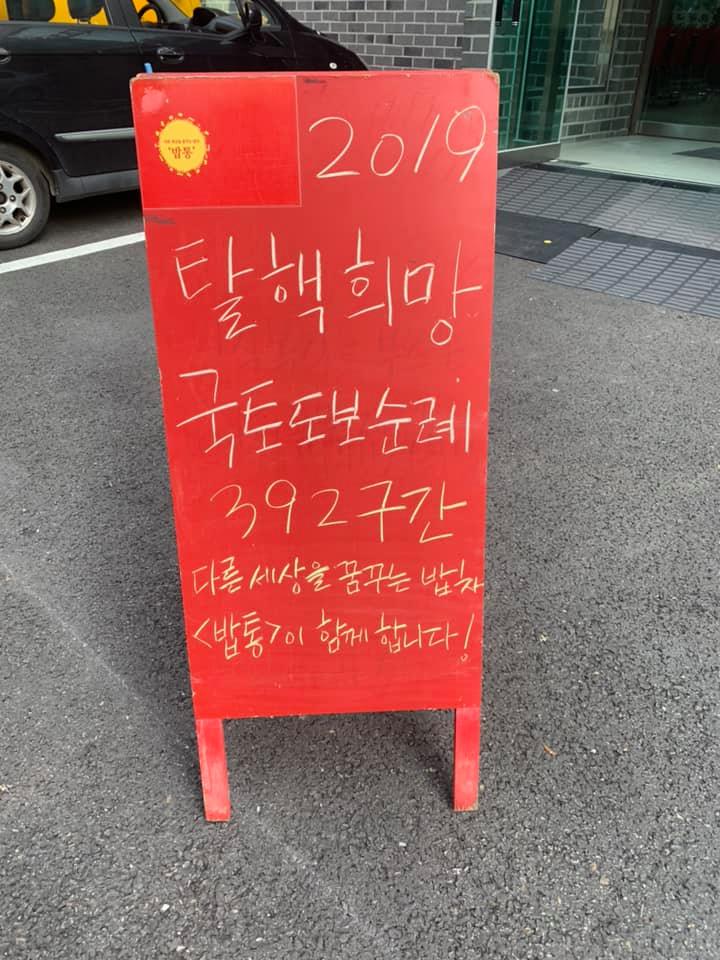 '밥통'
2019
탈핵희망
국토도보순례
392구간
다른 세상을 꿈꾸는 밥차
<밥통>이 함께 합니다!